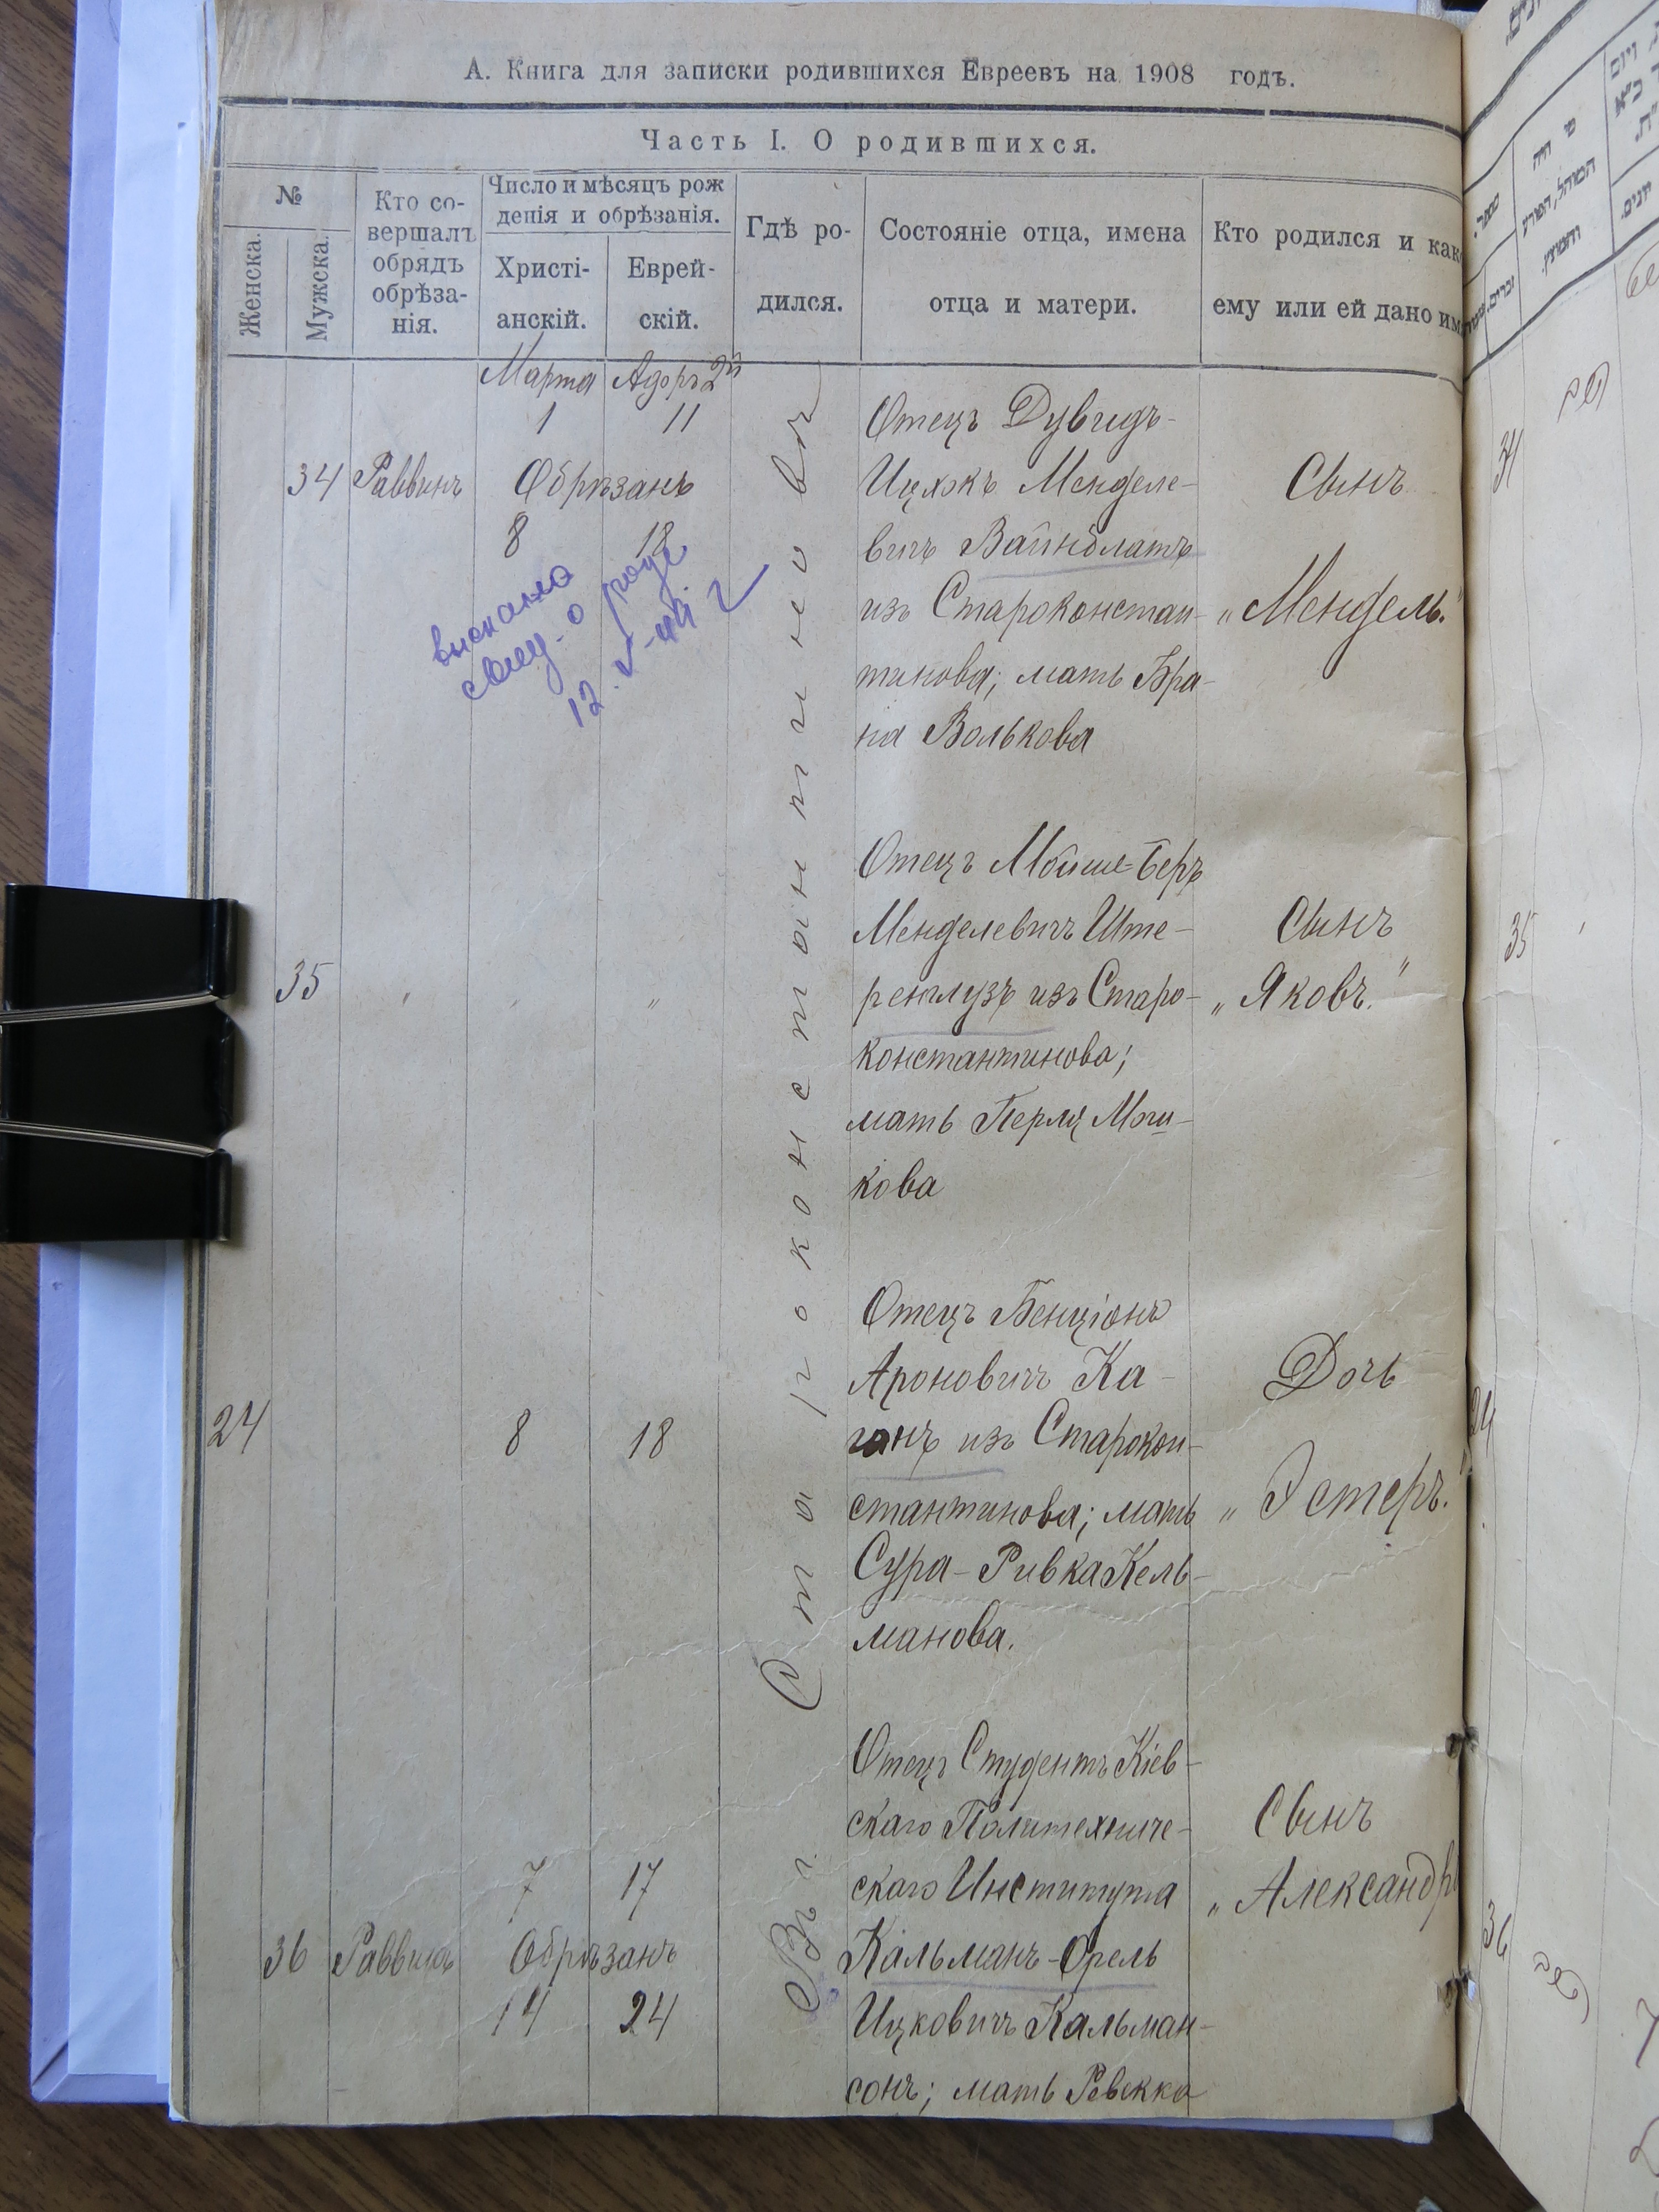 А. Книга для записки родившихся Евреевъ на 1908 годъ.
Часть I. О родившихся.
№
Женска.
Мужска.
Кто со-
вершалъ
обрядъ
обрѣза-
нія.
Число и мѣсяцъ рож
денія и обрѣзанія.
Христі-
анскій.
Еврей-
скій.
Гдѣ ро-
дился.
Состояніе отца, имена
отца и матери.
Кто родился и как
ему или ей дано им
Марта Адоръ 2й
1 11
34 Раввинъ Обрѣзанъ
8 18
свид. о рожд
12. V-49 г
Въ г. Староконстантиновѣ
Отецъ Дувидъ-
Ицхокъ Менделе-
вичъ Вайнблатъ
изъ Староконстан-
тинова; мать Бра-
на Волькова
Сынъ
„Мендель."
35 " " "
Отецъ Мойше-Беръ
Менделевичъ Ште-
ренлузъ изъ Старо-
константинова;
мать Перля
кова
Сынъ
„Яковъ."
24 8 18
Отецъ Бенціонъ
Ароновичъ Ка-
ганъ изъ Старокон-
стантинова; мать
Сура-Ривка Кель-
манова.
Дочь
„Эстеръ."
7 17
36 Раввинъ Обрѣзанъ
14 24
Отецъ Студентъ Кіев-
скаго Политехниче-
скаго Института
Кальманъ-Орель
Ицковичъ Кальман-
сонъ; мать Ревекка
Сынъ
„Александръ
34
35
24
36